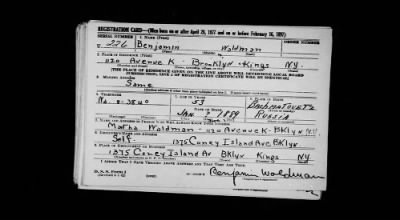 REGISTRATION CARD—(Men born on or after April 28, 1877 and on or before February 16, 1897)
SERIAL NUMBER 1. NAME (Print) ORDER NUMBER
U 226 Benjamin Waldman
(First) (Middle) (Last)
2. PLACE OF RESIDENCE (Print)
1120 Avenue K - Brooklyn - Kings NY.
(Number and street) (Town, township, village, or city) (County) (State)
[THE PLACE OF RESIDENCE GIVEN ON THE LINE ABOVE WILL DETERMINE LOCAL BOARD
JURISDICTION; LINE 2 OF REGISTRATION CERTIFICATE WILL BE IDENTICAL]
3. MAILING ADDRESS
Same
4. TELEPHONE 5. AGE IN YEARS 6. PLACE OF BIRTH
53
DATE OF BIRTH
Jan 1889 Russia
7. NAME AND ADDRESS OF PERSON WHO WILL ALWAYS KNOW YOUR ADDRESS
Martha Waldman - 1120 Avenue K - Bklyn N.Y.
8. EMPLOYER'S NAME AND ADDRESS
Self 1375 Coney Island Ave Bklyn
9. PLACE OF EMPLOYMENT OR BUSINESS
1375 Coney Island Av Bklyn Kings NY.
I AFFIRM THAT I HAVE VERIFIED ABOVE ANSWERS AND THAT THEY ARE TRUE.
D. S. S. Form 1
Benjamin Waldman